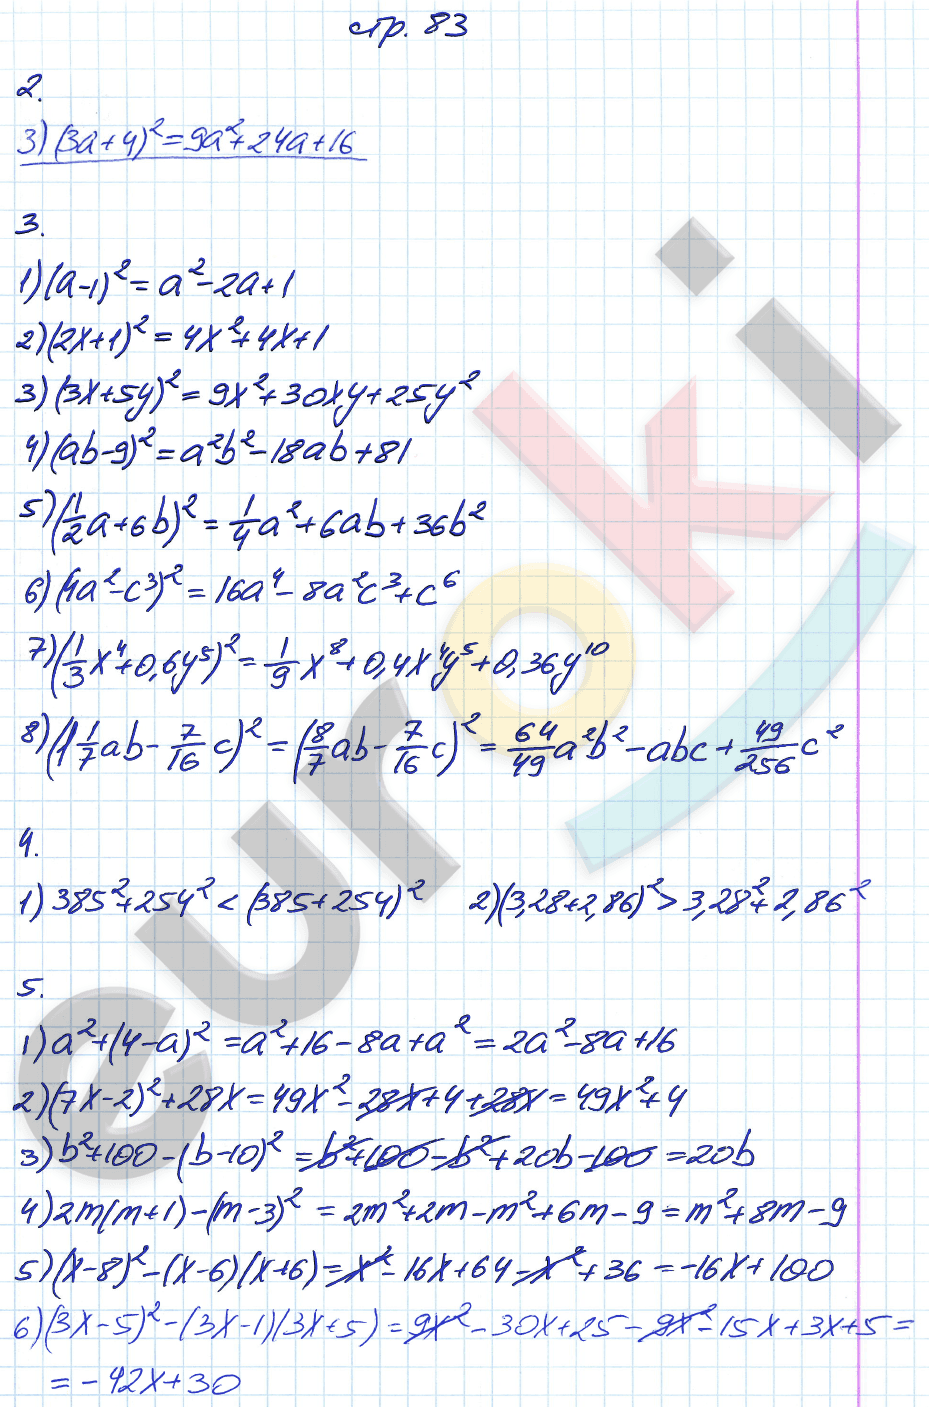 стр. 83
2.
3) (3a+4)² = 9a²+24a+16
3.
1) (a-1)² = a²-2a+1
2) (2x+1)² = 4x²+4x+1
3) (3x+5y)² = 9x²+30xy+25y²
4) (ab-9)² = a²b²-18ab+81
5) (1/2a+6b)² = 1/4a²+6ab+36b²
6) (4a²-c³)² = 16a⁴-8a²c³+c⁶
7) (1/3x⁴+0,6y⁵)² = 1/9x⁸+0,4x⁴y⁵+0,36y¹⁰
8) (1 1/7ab - 7/16c)² = (8/7ab - 7/16c)² = 64/49a²b² - abc + 49/256c²
4.
1) 385²+254² < (385+254)² 2) (3,28+2,86)² > 3,28²+2,86²
5.
1) a²+(4-a)² = a²+16-8a+a² = 2a²-8a+16
2) (7x-2)²+28x = 49x²-28x+4+28x = 49x²+4
3) b²+100-(b-10)² = b²+100-b²+20b-100 = 20b
4) 2m(m+1)-(m-3)² = 2m²+2m-m²+6m-9 = m²+8m-9
5) (x-8)²-(x-6)(x+6) = x²-16x+64-x²+36 = -16x+100
6) (3x-5)²-(3x-1)(3x+5) = 9x²-30x+25-9x²-15x+3x+5 =
= -42x+30
euroki